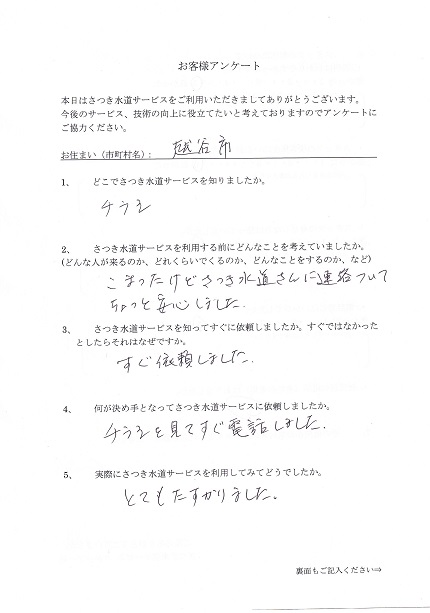 お客様アンケート
本日はさつき水道サービスをご利用いただきましてありがとうございます。
今後のサービス、技術の向上に役立てたいと考えておりますのでアンケートに
ご協力ください。
お住まい(市町村名): 越谷市
1、 どこでさつき水道サービスを知りましたか。
チラシ
2、 さつき水道サービスを利用する前にどんなことを考えていましたか。
(どんな人が来るのか、どれくらいでくるのか、どんなことをするのか、など)
こまったけどさつき水道さんに連絡ついて
ちょっと安心しました.
3、 さつき水道サービスを知ってすぐに依頼しましたか。すぐではなかった
としたらそれはなぜですか。
すぐ依頼しました.
4、 何が決め手となってさつき水道サービスに依頼しましたか。
チラシを見てすぐ電話しました.
5、 実際にさつき水道サービスを利用してみてどうでしたか。
とてもたすかりました.
裏面もご記入ください⇒